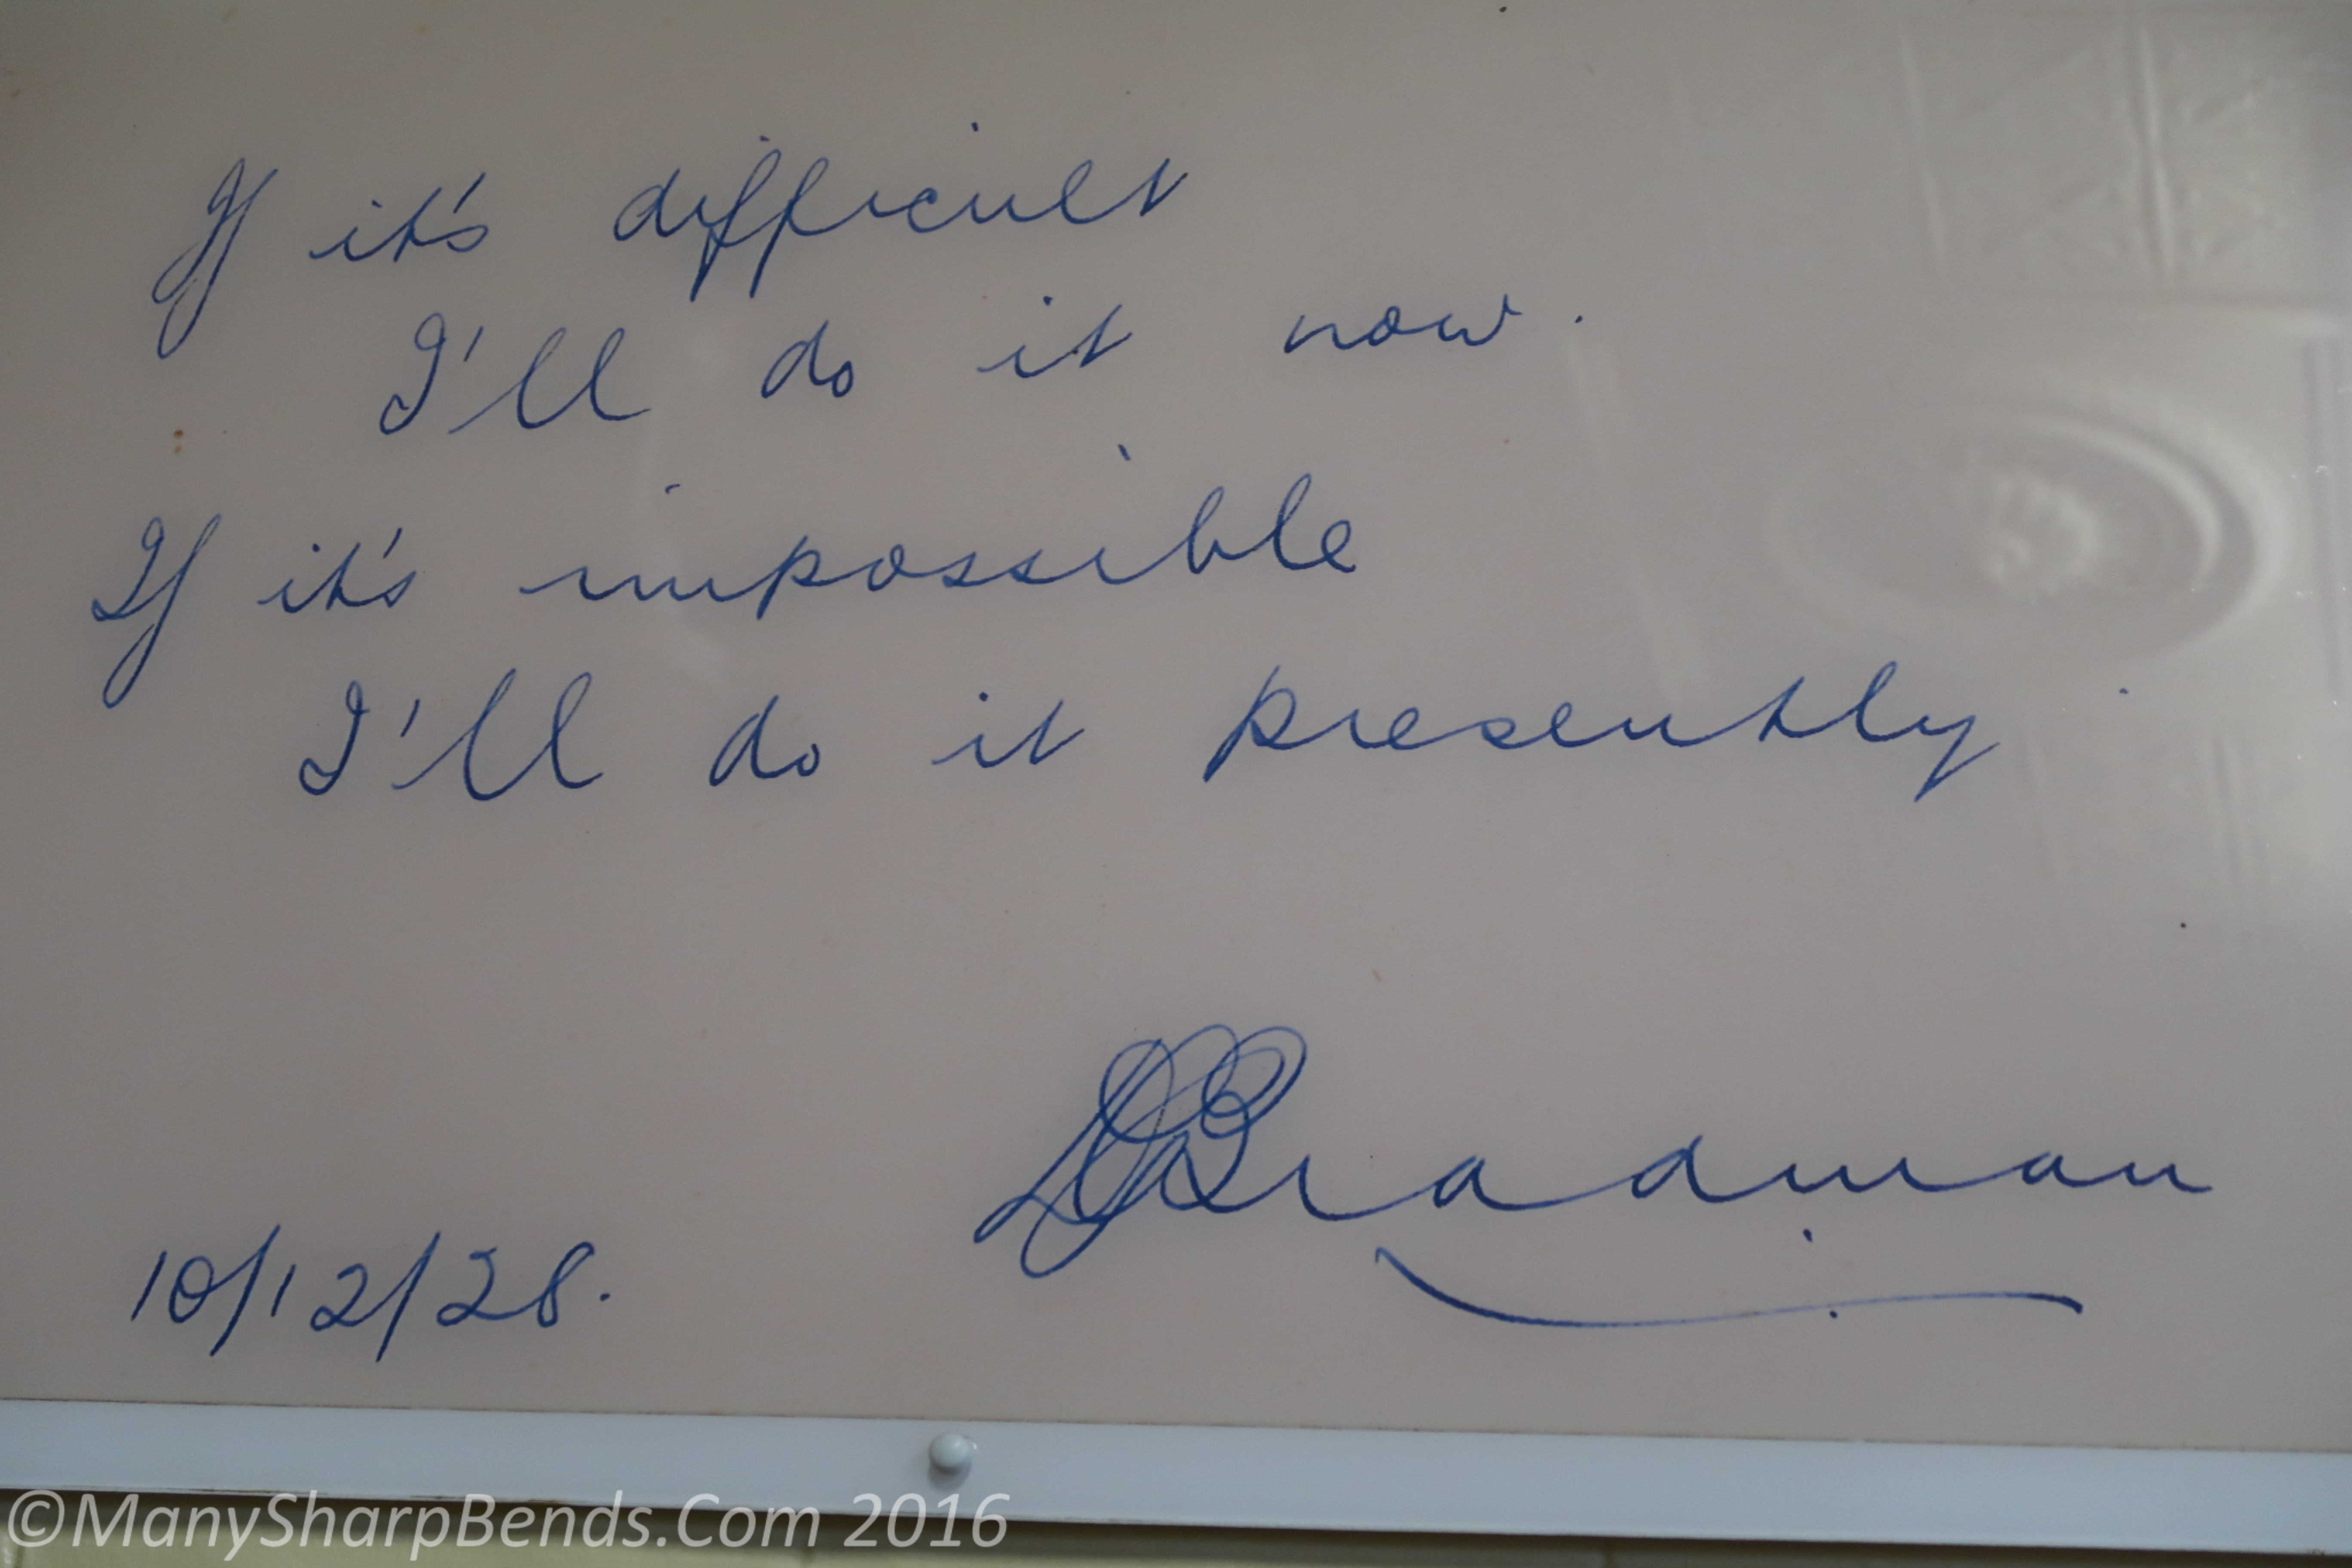 If it's difficult
I'll do it now.
If it's impossible
I'll do it presently.
DGBradman
10/12/28.
©ManySharpBends.Com 2016